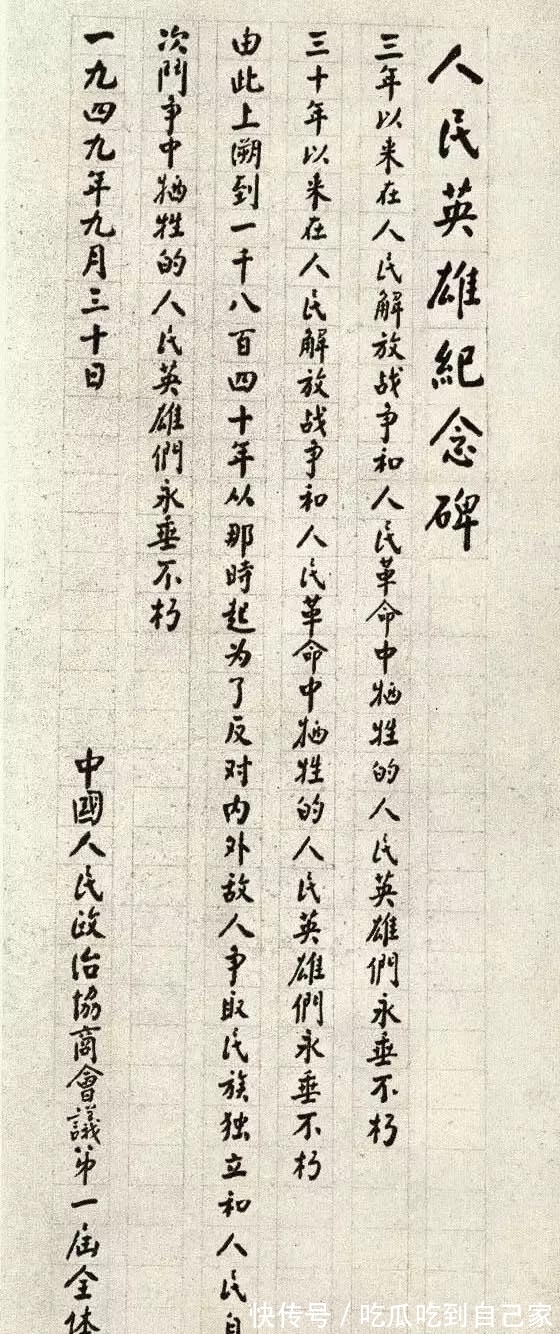 人民英雄紀念碑
三年以来在人民解放战争和人民革命中牺牲的人民英雄們永垂不朽
三十年以来在人民解放战争和人民革命中牺牲的人民英雄們永垂不朽
由此上溯到一千八百四十年从那時起为了反对内外敌人争取民族独立和人民自
次鬥争中牺牲的人民英雄們永垂不朽
一九四九年九月三十日
中國人民政治協商會議第一届全体
快传号/吃瓜吃到自己家